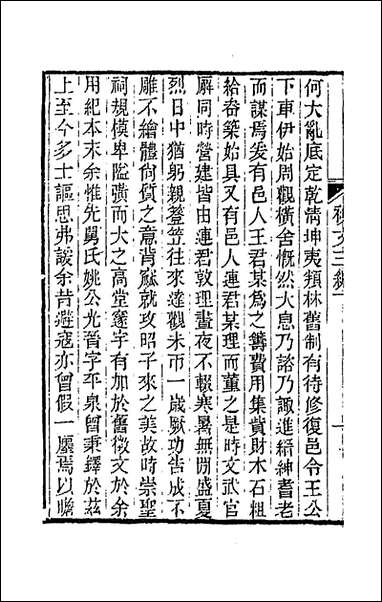 何大亂底定乾清坤夷頖林舊制有待修復邑令王公
下車伊始周觀橫舍慨然大息乃諮乃諏進縉紳耆老
而謀焉爰有邑人王君某為之籌費用集貲財木石粗
給畚築始具又有邑人連君某理而董之是時文武官
廨同時營建皆由連君敦理晝夜不輟寒暑無閒盛夏
烈日中猶躬親簦笠往來達觀未帀一歲厥功告成不
雕不繪體何質之意肯獻就攻昭子來之美故時崇聖
祠規模卑陋彉而大之高堂邃宇有加於舊徵文於余
用紀本末余惟先舅氏姚公光晉字平泉曾秉鐸於茲
上至今多士謳思弗諼余昔避寇亦曾假一廛焉以瞻
雜文三編一